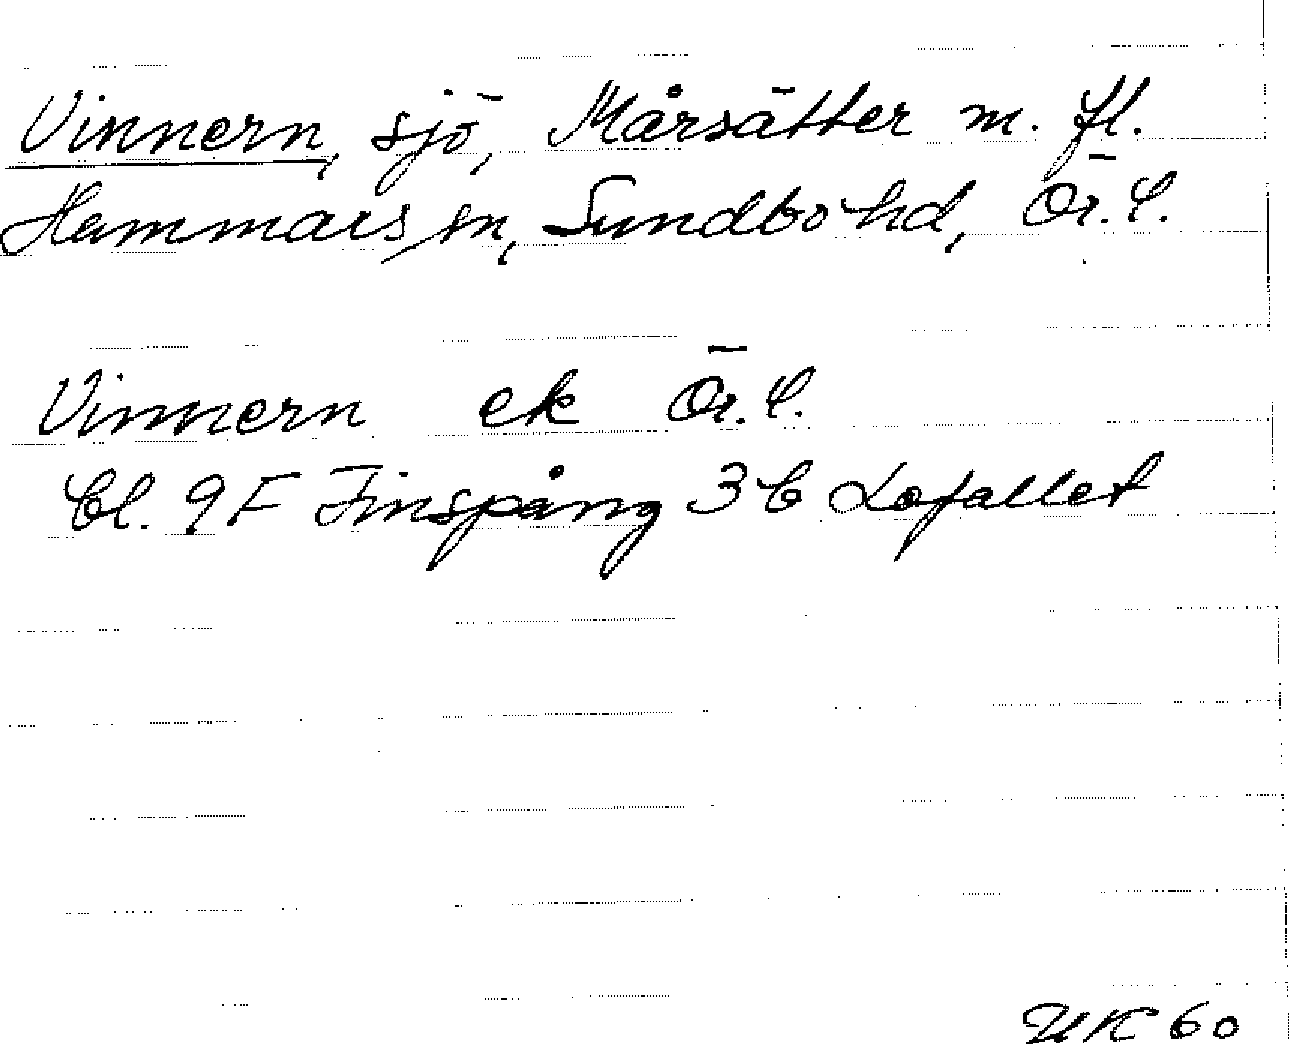 Vinnern, sjö, Mårsätter m. fl.
Hammars sn, Sundbo hd, Ör. l.
Vinnern ek Ör. l.
bl. 9F Finspång 3b Lofallet
UK 60